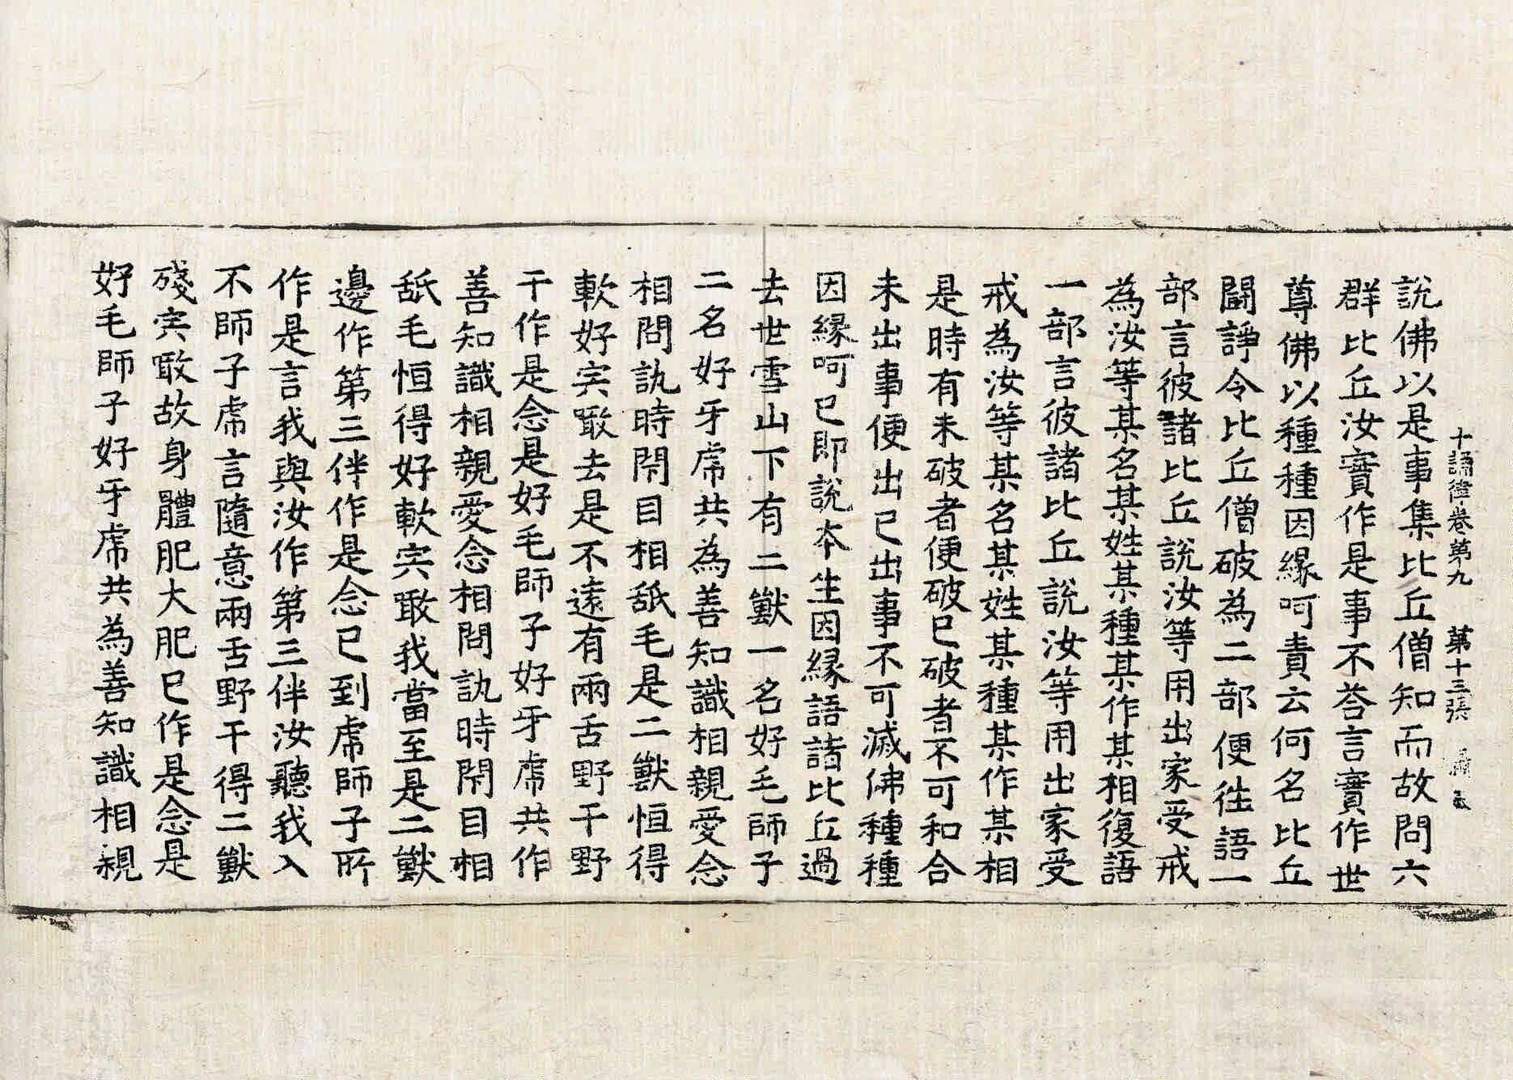 十誦律卷第九　第十三張
說佛以是事集比丘僧知而故問六
群比丘汝實作是事不荅言實作世
尊佛以種種因緣呵責云何名比丘
鬪諍令比丘僧破為二部便徃語一
部言彼諸比丘說汝等用出家受戒
為汝等某名某姓某種某作某相復語
一部言彼諸比丘說汝等用出家受
戒為汝等某名某姓某種某作某相
是時有未破者便破已破者不可和合
未出事便出已出事不可滅佛種種
因緣呵已即說本生因緣語諸比丘過
去世雪山下有二獸一名好毛師子
二名好牙虎共為善知識相親愛念
相問訊時閇目相舐毛是二獸恒得
軟好宍噉去是不遠有兩舌野干野
干作是念是好毛師子好牙虎共作
善知識相親愛念相問訊時閇目相
舐毛恒得好軟宍噉我當至是二獸
邊作第三伴作是念已到虎師子所
作是言我與汝作第三伴汝聽我入
不師子虎言隨意兩舌野干得二獸
殘宍噉故身體肥大肥已作是念是
好毛師子好牙虎共為善知識相親